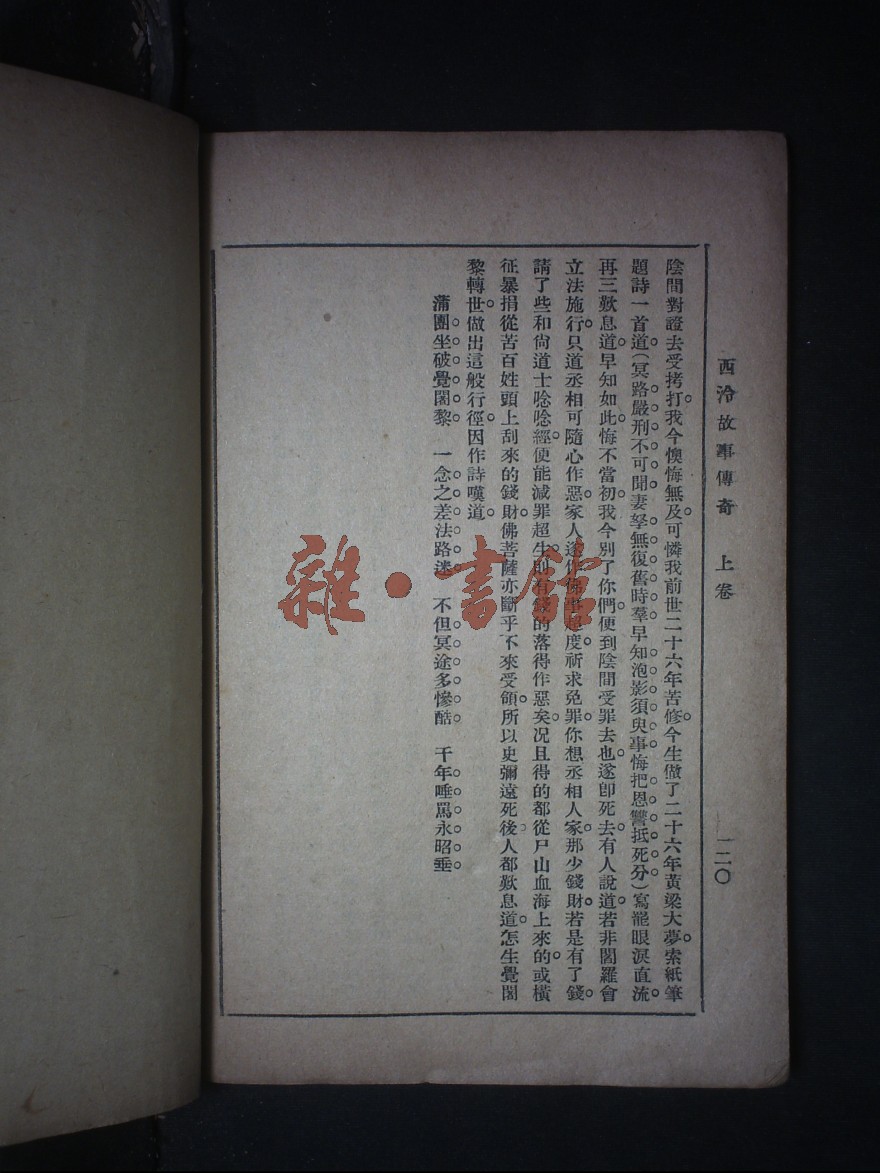 西泠故事傳奇 上卷
一二〇
陰間對證去受拷打。我今懊悔無及。可憐我前世二十六年苦修。今生做了二十六年黃梁大夢。索紙筆
題詩一首道。(冥路嚴刑不可聞。妻孥無復舊時羣。早知泡影須臾事。悔把恩讐抵死分。)寫罷眼淚直流。
再三歎息道。早知如此。悔不當初。我今別了你們。便到陰間受罪去也。遂卽死去。有人說道。若非閻羅會
立法施行。只道丞相可隨心作惡。家人遂作佛事超度。祈求免罪。你想丞相人家。那少錢財。若是有了錢。
請了些和尙道士唸唸經。便能減罪超生。則有錢的落得作惡矣。况且得的都從尸山血海上來的。或橫
征暴捐從苦百姓頭上刮來的錢財。佛菩薩亦斷乎不來受領。所以史彌遠死後。人都歎息道。怎生覺闍
黎轉世。做出這般行徑。因作詩嘆道。
蒲團坐破覺闍黎。 一念之差法路迷。 不但冥途多慘酷。 千年唾罵永昭垂。
雜·書館